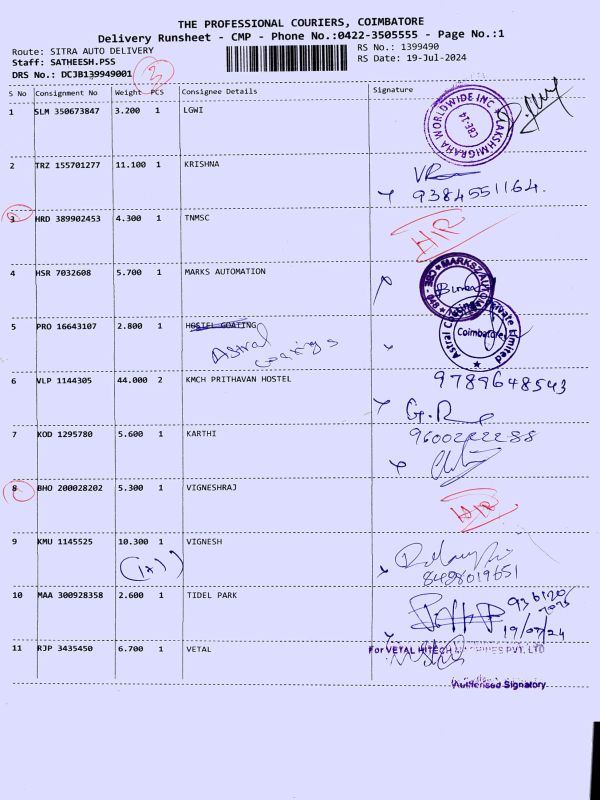 THE PROFESSIONAL COURIERS, COIMBATORE
Delivery Runsheet - CMP - Phone No.:0422-3505555 - Page No.:1
Route: SITRA AUTO DELIVERY
RS No.: 1399490
Staff: SATHEESH.PSS
RS Date: 19-Jul-2024
DRS No.: DCJB139949001
3
S No Consignment No Weight PCS Consignee Details Signature
1 SLM 350673847 3.200 1 LGWI
LAKSHMIGRAHA WORLDWIDE INC
CBE-14
2 TRZ 155701277 11.100 1 KRISHNA
9384551164.
3 HRD 389902453 4.300 1 TNMSC
4 HSR 7032608 5.700 1 MARKS AUTOMATION
5 PRO 16643107 2.800 1 HOSTEL COATING
Astral
coatings
Coimbatore
Private Limited
6 VLP 1144305 44.000 2 KMCH PRITHAVAN HOSTEL
9789648543
7 KOD 1295780 5.600 1 KARTHI
9600222288
8 BHO 200028202 5.300 1 VIGNESHRAJ
9 KMU 1145525 10.300 1 VIGNESH
8488019651
10 MAA 300928358 2.600 1 TIDEL PARK
19/07/24
11 RJP 3435450 6.700 1 VETAL
For VETAL HITECH MACHINES PVT. LTD
Authorised Signatory